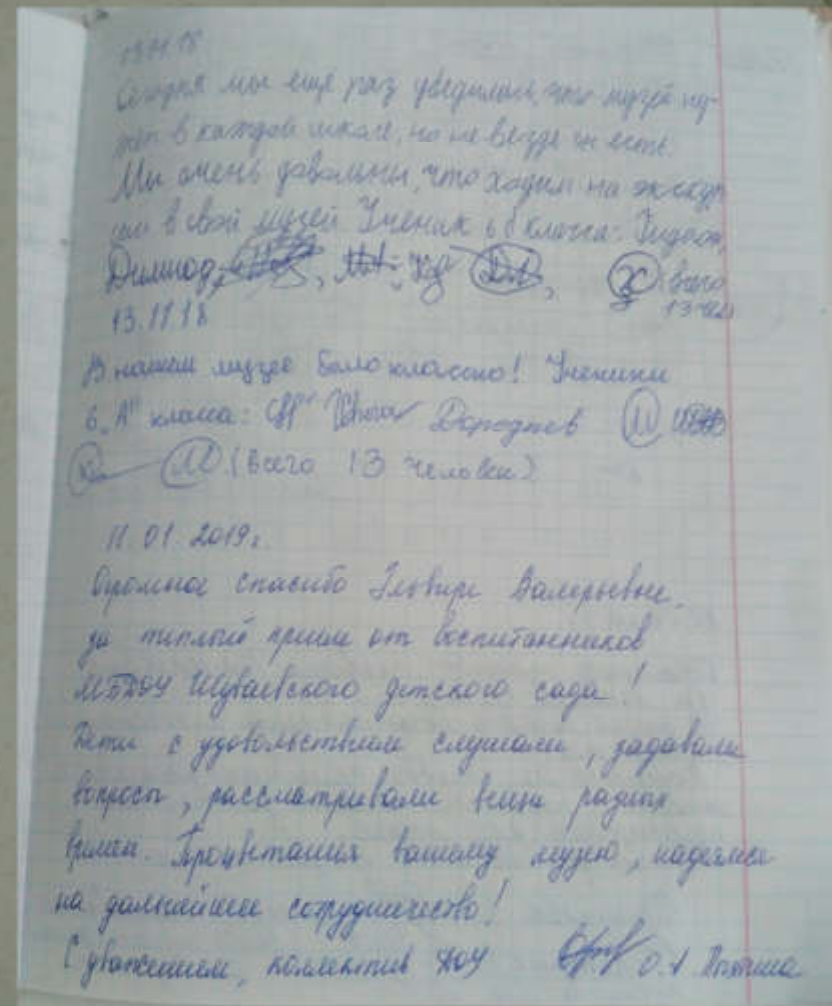 13.11.18
Сегодня мы ещё раз убедились, что музей ну-
жен в каждой школе, но не везде он есть.
Мы очень довольны, что ходим на экскур
сии в свой музей Ученик 6 б класса:
(всего
13 чел)
13.11.18
В нашем музее было классно! Ученики
6 "А" класса:
(всего 13 человек)
11.01.2019г.
Огромное спасибо Эльвире Валерьевне,
за тёплый приём от воспитанников
МБДОУ Шуваевского детского сада!
Дети с удовольствием слушали, задавали
вопросы, рассматривали вещи разных
времён. Процветания вашему музею, надеемся
на дальнейшее сотрудничество!
С уважением, коллектив ДОУ О.А.